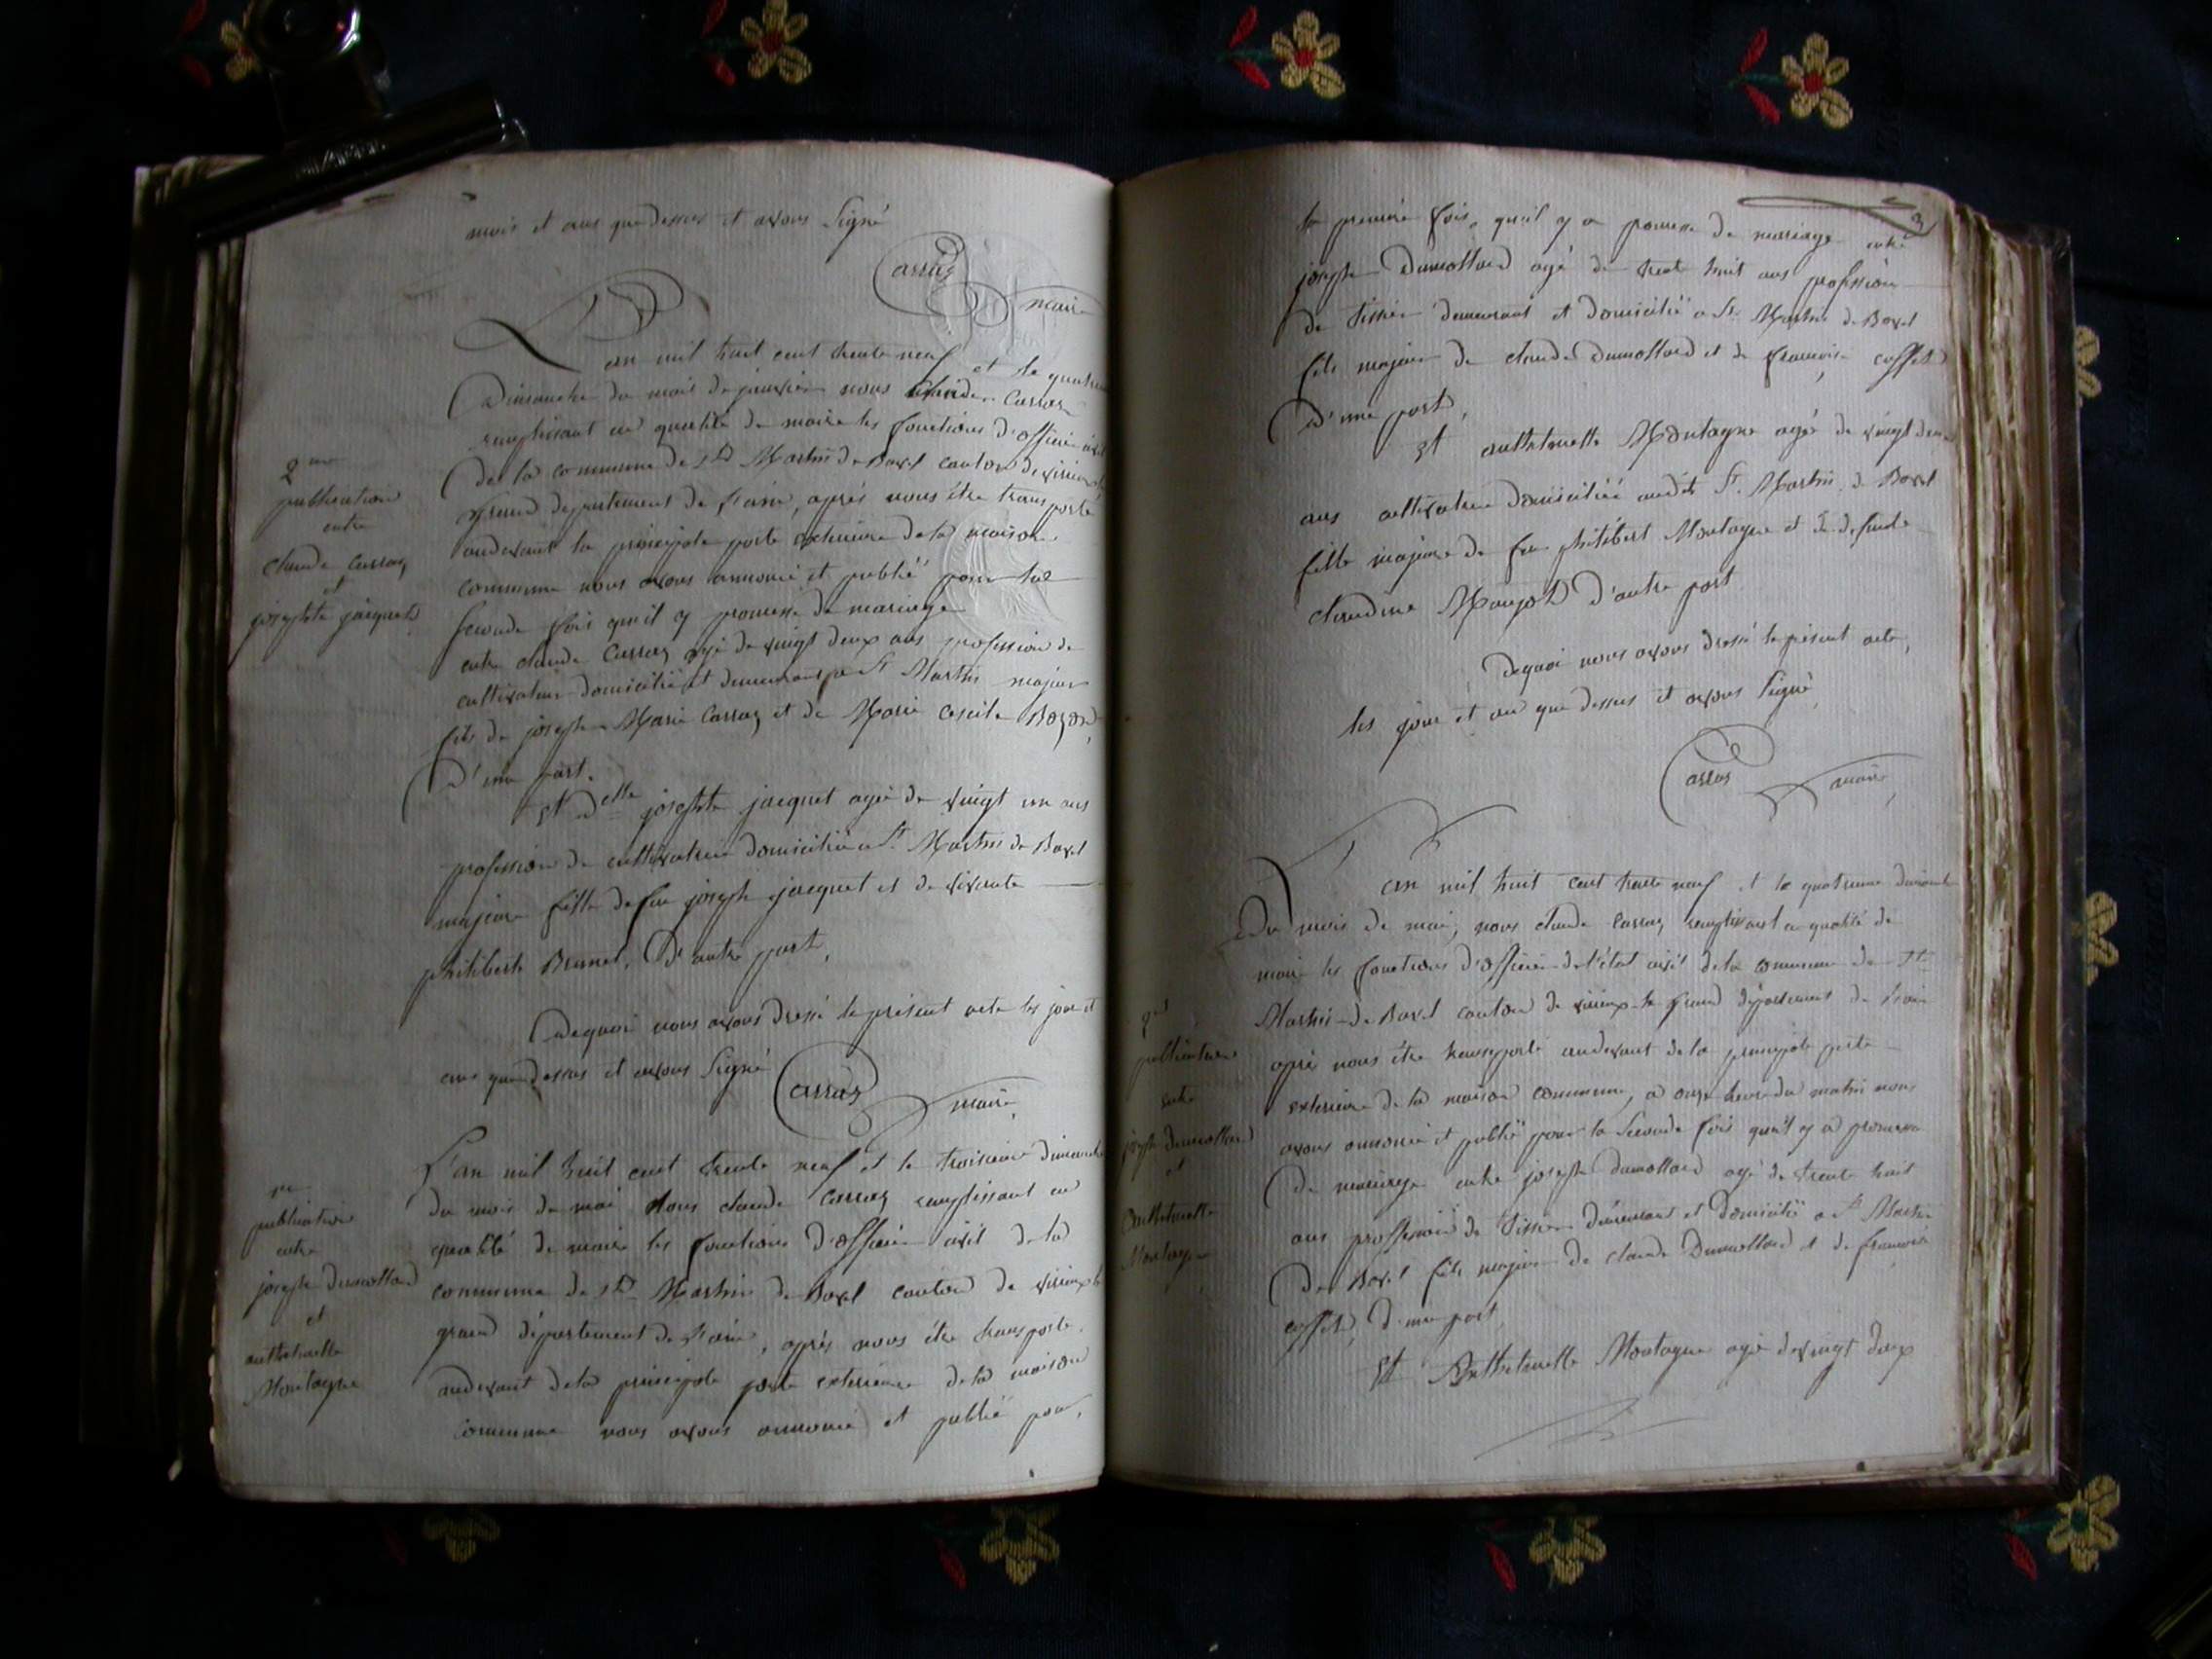 mois et ans que dessus et avons Signé
Carraz
maire
L'an mil huit cent trente neuf et le quatrieme
Dimanche du mois de janvier nous Claude Carraz
remplissant en qualité de maire les fonctions d'officier civil
De la commune de St Martin de Bavel canton de virieux le
grand departement de l'ain, après nous être transporté
audevant la principale porte exterieure de la maison
commune nous avons annoncé et publié pour la
seconde fois qu'il y promesse de mariage
entre claude Carraz agé de vingt deux ans profession de
cultivateur domicilié et demeurant a St Martin majeur
fils de joseph Marie Carraz et de Marie Cecile Bozon
D'une part.
Et Delle josephte jacquet agée de vingt un ans
profession de cultivatrice domiciliée a St Martin de Bavel
majeure fille de feu joseph jacquet et de vivante
philiberte Brunet, D'autre part,
Dequoi nous avons Dressé le présent acte les jour et
ans que dessus et avons Signé
Carraz
maire
2me
publication
entre
claude Carraz
et
josephte jacquet
L'an mil huit cent trente neuf et le troisieme Dimanche
du mois de mai Nous claude Carraz remplissant en
qualité de maire les fonctions d'officier civil de la
commune de St Martin de Bavel canton de virieux le
grand département de l'ain, après nous être transporté
audevant de la principale porte exterieure de la maison
commune nous avons annoncé et publié pour,
publication
entre
joseph dumollard
et
anthelmette
Montagne
3
la premiere fois, qu'il y a promesse de mariage entre
joseph Dumollard agé de trente huit ans profession
de tissier demeurant et domicilié a St Martin de Bavel
fils majeur de claude Dumollard et de françoise
D'une part,
Et anthelmette Montagne agée de vingt deux
ans cultivatrice domiciliée audit St Martin de Bavel
fille majeure de feu philibert Montagne et de defunte
claudine D'autre part
Dequoi nous avons dressé le présent acte,
les jour et an que dessus et avons Signé
Carraz maire
L'an mil huit cent trente neuf et le quatrieme dimanche
Du mois de mai, nous claude Carraz remplissant en qualité de
maire les fonctions d'officier de l'état civil de la commune de St
Martin de Bavel canton de virieux le grand département de l'ain
après nous être transporté audevant de la principale porte
exterieure de la maison commune, a onze heure du matin nous
avons annoncé et publié pour la Seconde fois qu'il y a promesse
De mariage entre joseph dumollard agé de trente huit
ans proffession de tissier demeurant et domicilié a St Martin
De Bavel fils majeur de claude Dumollard et de françoise
D'une part
Et Anthelmette Montagne agée de vingt deux
publication
entre
joseph dumollard
et
Anthelmette
Montagne